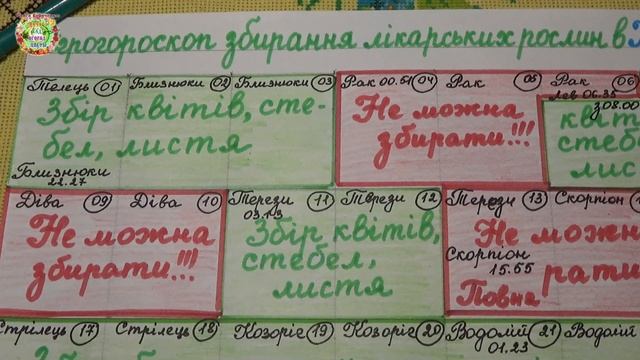 грогороскоп збирання лікарських рослин в
Телець 01 Близнюки 02 Близнюки 03
Збір квітів, сте-
бел, листя
Близнюки
22.27
Рак 00.51 04 Рак 05 Рак 06
Не можна
збирати!!!
Лев 06.35
з 08.00
квіт
стеб
лис
Діва 09 Діва 10
Не можна
збирати!!!
Терези 11 Терези 12
03.13
Збір квітів,
стебел,
листя
Терези 13 Скорпіон
Не можн
Скорпіон
15.55
рати
Повна
Стрілець 17 Стрілець 18 Козоріг 19 Козоріг 20 Водолій 21 Водолій
01.23